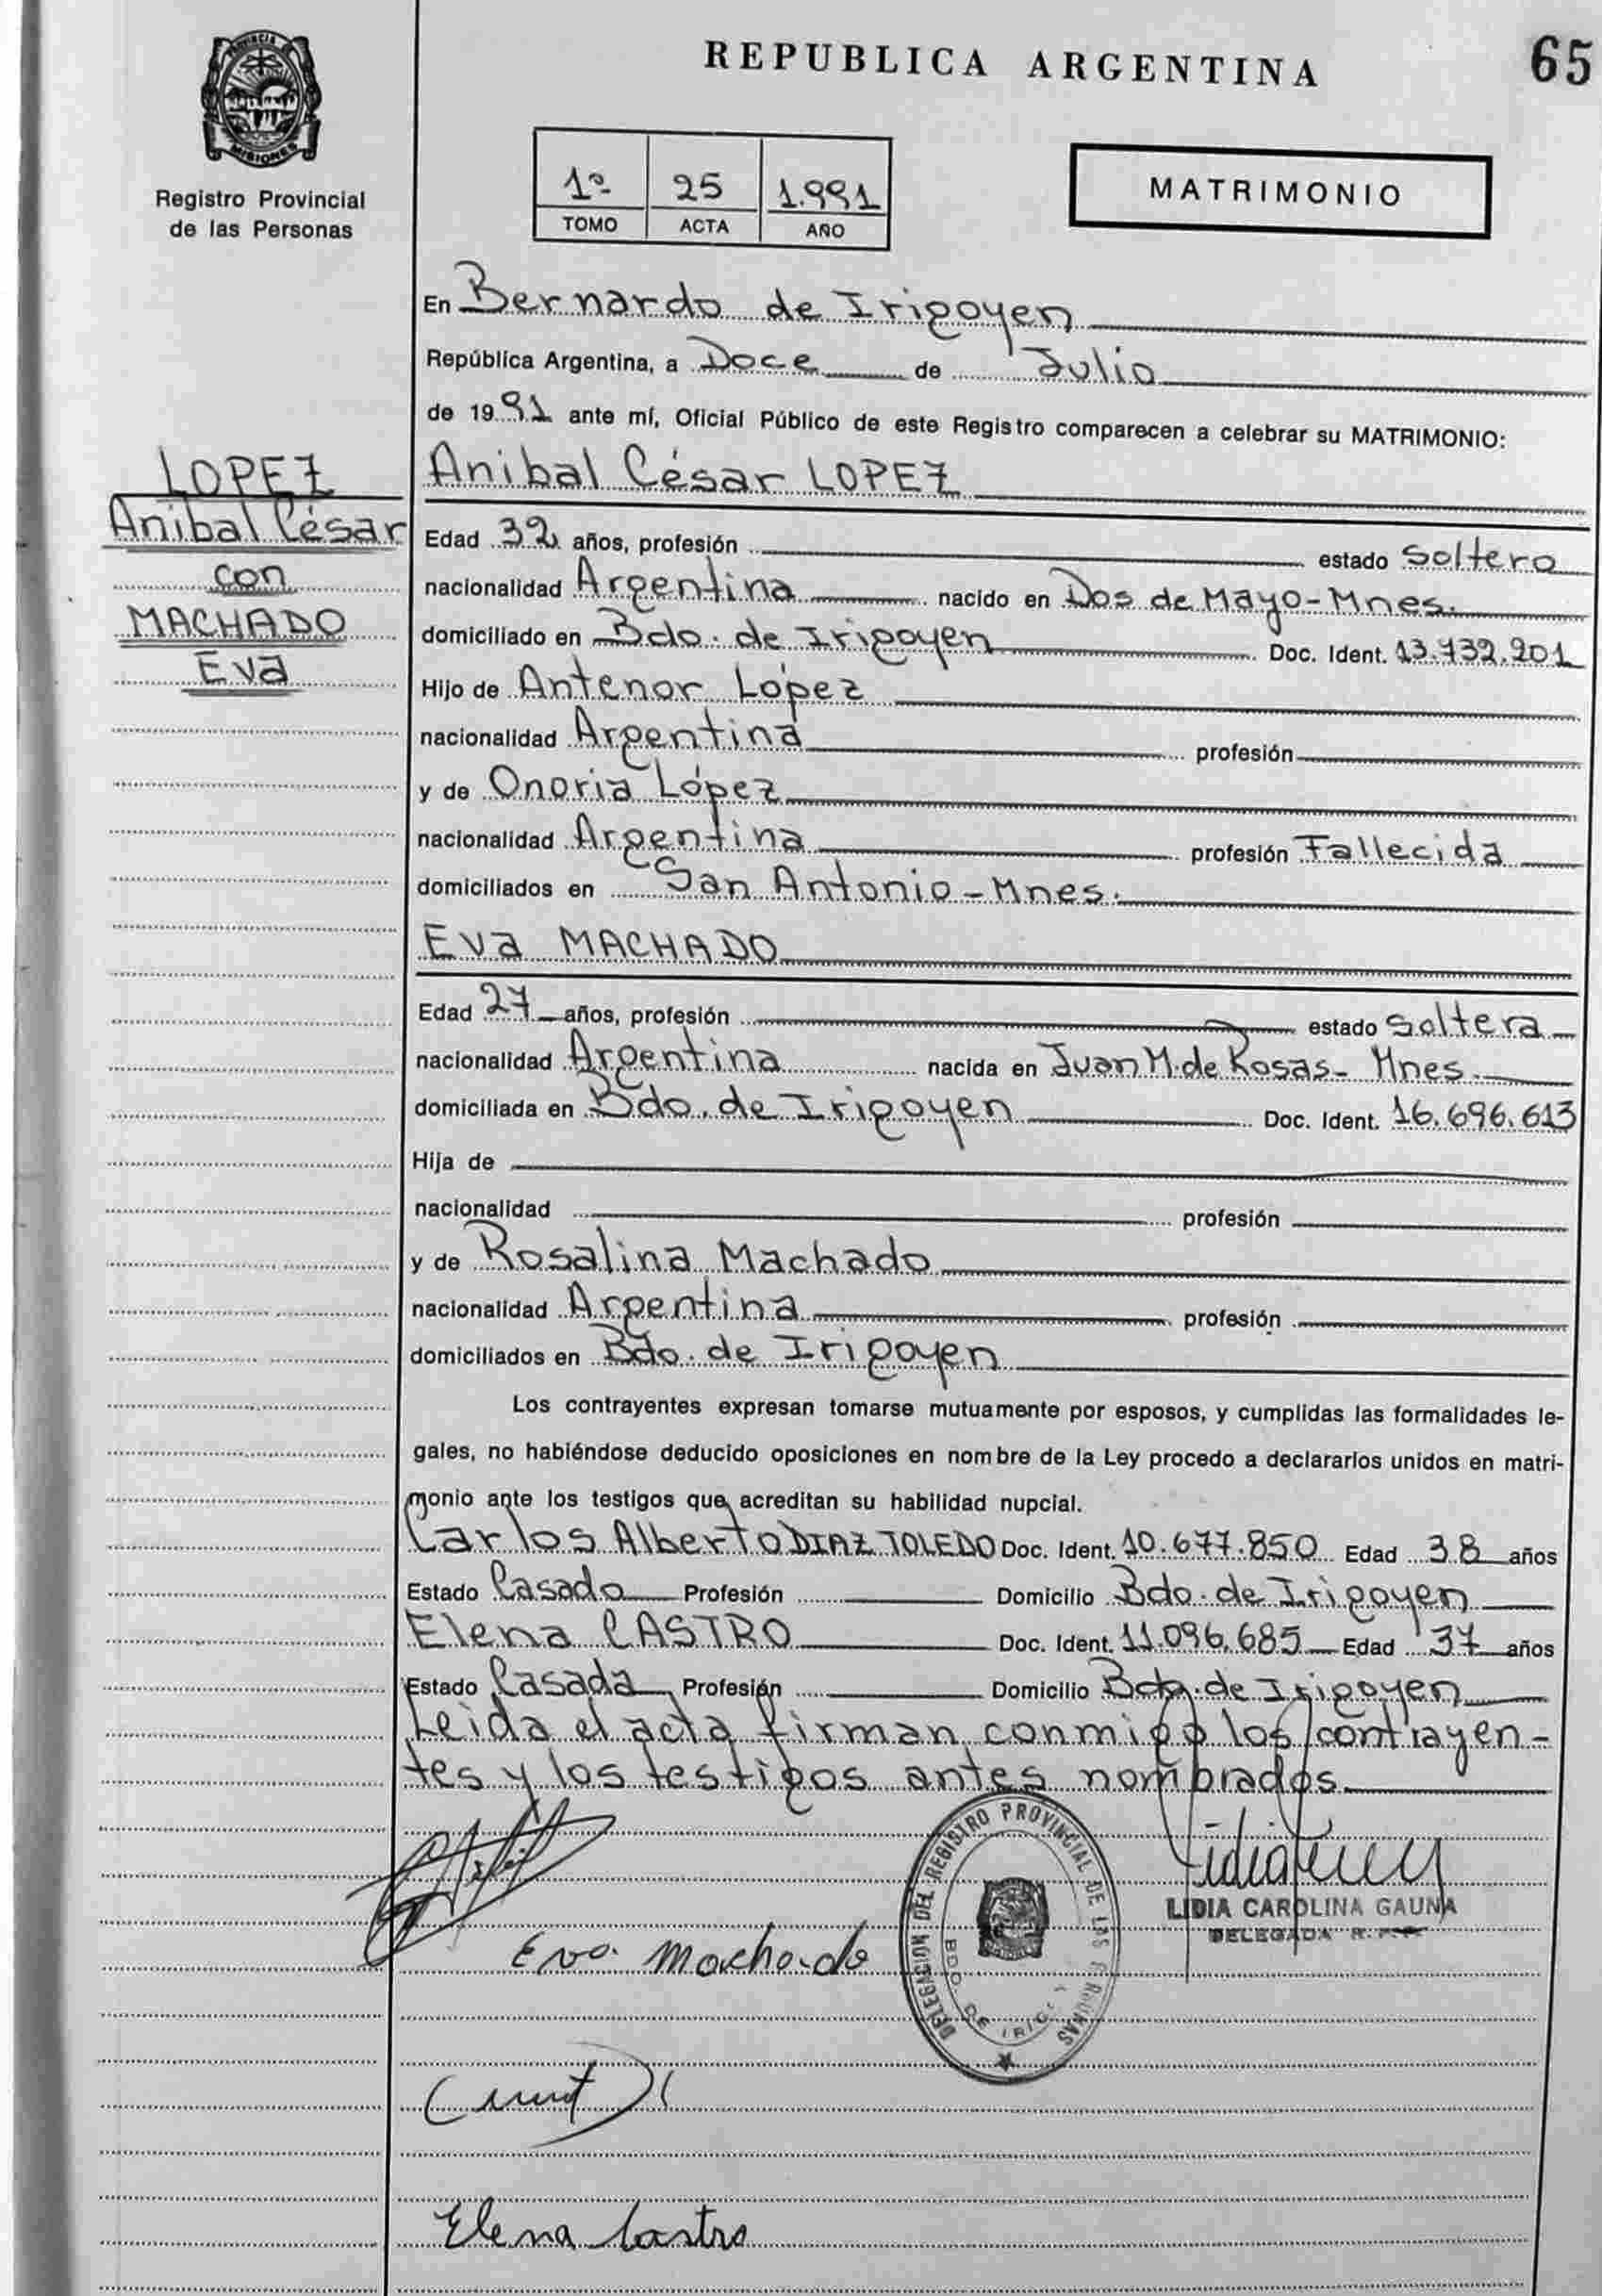 PROVINCIA DE
MISIONES
Registro Provincial
de las Personas
REPUBLICA ARGENTINA
65
1º 25 1.991
TOMO ACTA AÑO
MATRIMONIO
En Bernardo de Irigoyen
República Argentina, a Doce de Julio
de 1991 ante mí, Oficial Público de este Registro comparecen a celebrar su MATRIMONIO:
LOPEZ
Anibal César
con
MACHADO
Eva
Anibal César LOPEZ
Edad 32 años, profesión estado Soltero
nacionalidad Argentina nacido en Dos de Mayo-Mnes.
domiciliado en Bdo. de Irigoyen Doc. Ident. 13.732.201
Hijo de Antenor López
nacionalidad Argentina profesión
y de Onoria López
nacionalidad Argentina profesión Fallecida
domiciliados en San Antonio-Mnes.
Eva MACHADO
Edad 27 años, profesión estado Soltera
nacionalidad Argentina nacida en Juan M. de Rosas- Mnes.
domiciliada en Bdo. de Irigoyen Doc. Ident. 16.696.613
Hija de
nacionalidad profesión
y de Rosalina Machado
nacionalidad Argentina profesión
domiciliados en Bdo. de Irigoyen
Los contrayentes expresan tomarse mutuamente por esposos, y cumplidas las formalidades le-
gales, no habiéndose deducido oposiciones en nombre de la Ley procedo a declararlos unidos en matri-
monio ante los testigos que acreditan su habilidad nupcial.
Carlos Alberto DIAZ TOLEDO Doc. Ident. 10.677.850 Edad 38 años
Estado Casado Profesión Domicilio Bdo. de Irigoyen
Elena CASTRO Doc. Ident. 11.096.685 Edad 37 años
Estado Casada Profesión Domicilio Bdo. de Irigoyen
Leida el acta firman conmigo los contrayen-
tes y los testigos antes nombrados.
DELEGACION DEL REGISTRO PROVINCIAL DE LAS PERSONAS
BDO. DE IRIG.
LIDIA CAROLINA GAUNA
DELEGADA R. P.
Eva Machado
Elena Castro